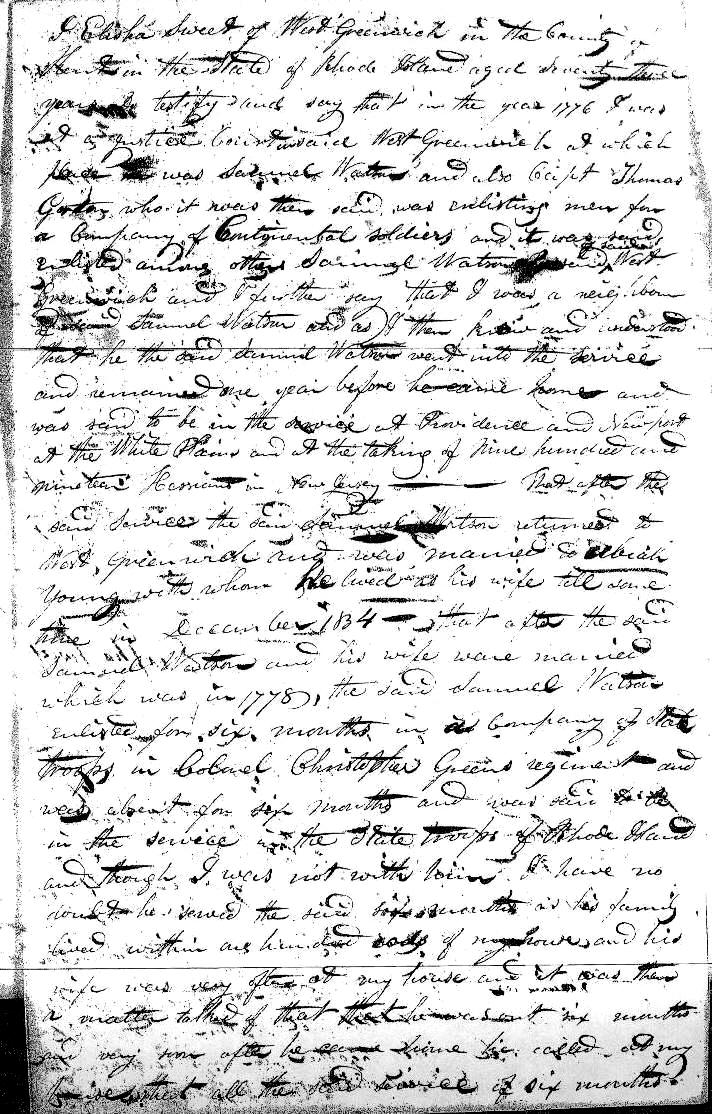 I Elisha Sweet of West Greenwich in the County of
Kent in the State of Rhode Island aged seventy three
years do testify and say that in the year 1776 I was
at a justice Court in said West Greenwich at which
place was Samuel Watson and also Capt Thomas
who it was then said was enlisting men for
a Company of Continental soldiers and it was said
enlisted among others Samuel Watson West
Greenwich and I further say that I was a neighbour
Samuel Watson and as I then knew and understood
that he the said Samuel Watson went into the service
and remained one year before he came home and
was said to be in the service at Providence and Newport
at the White Plains and at the taking of nine hundred and
nineteen Hessians in New Jersey — That after the
said service the said Samuel Watson returned to
West Greenwich and was married to Abiah
Young with whom he lived as his wife till some
time in December 1834 — that after the said
Samuel Watson and his wife were married
which was in 1778, the said Samuel Watson
enlisted for six months in a Company of State
troops in Colonel Christopher Greens regiment and
was absent for six months and was said to be
in the service in the State troops of Rhode Island
and though I was not with him I have no
doubt he served the said six months as his family
lived within one hundred rods of my house and his
wife was very often at my house and it was then
a matter talked of that he was out six months
and very soon after he came home he called at my
house that all the said service of six months.